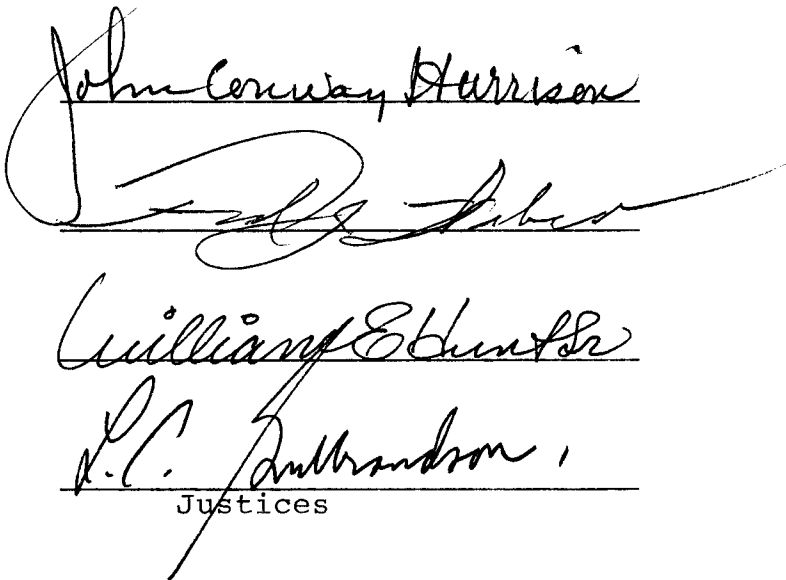 John Conway Harrison
William E Hunt Sr
L.C. Gulbrandson
Justices